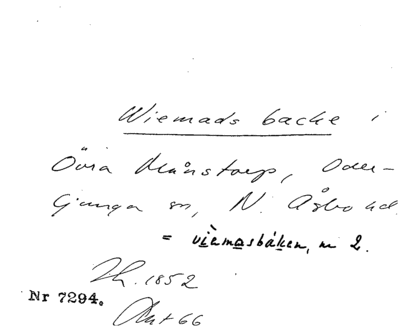 Wiemads backe i
Övra Månstorp, Oder-
ljunga sn, N. Åsbo hd.
= vìemasbáken, m 2.
Th. 1852
Nr 7294.
66